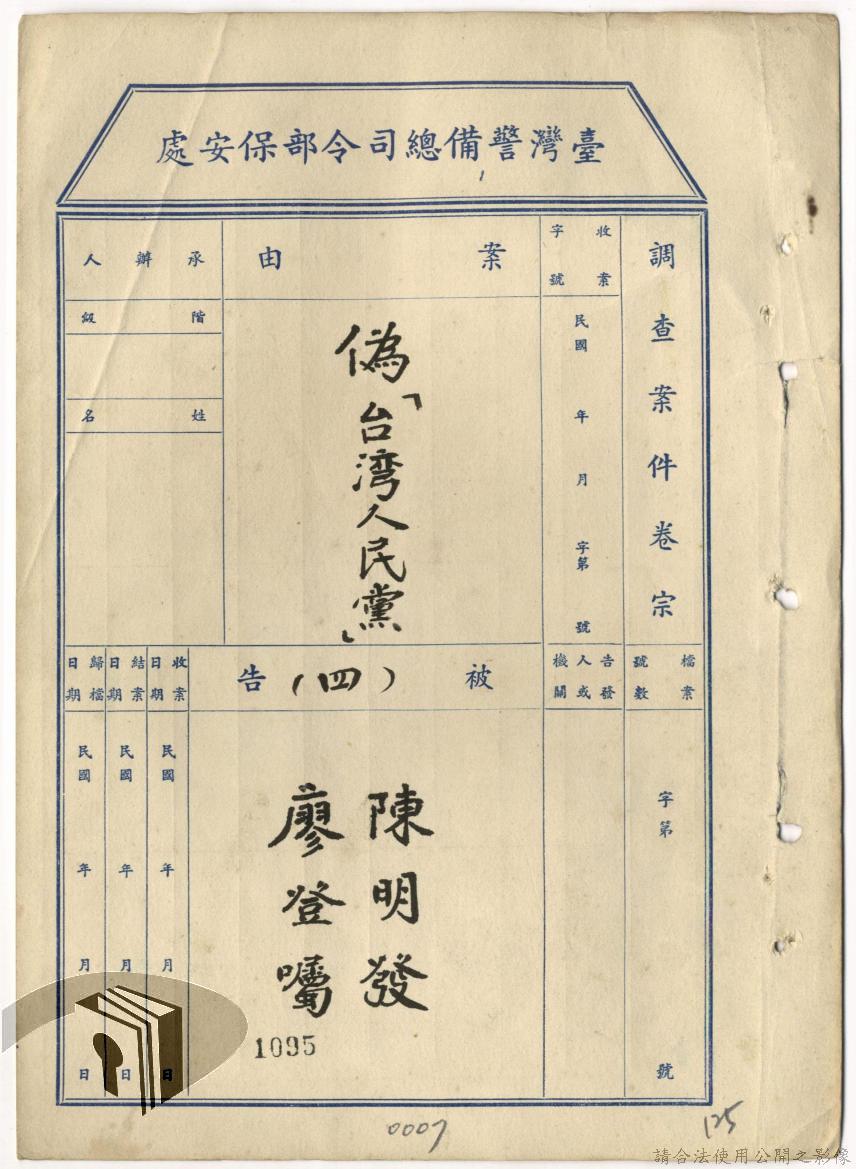 臺灣警備總司令部保安處
調查案件卷宗
檔案號數
字第 號
收案字號
民國 年 月 字第 號
告發人或機關
案由
偽「台湾人民黨」
被(四)告
陳明發
廖登囑
承辦人
階級
姓名
收案日期
民國 年 月 日
結案日期
民國 年 月 日
歸檔日期
民國 年 月 日
1095
0007
125
請合法使用公開之影像